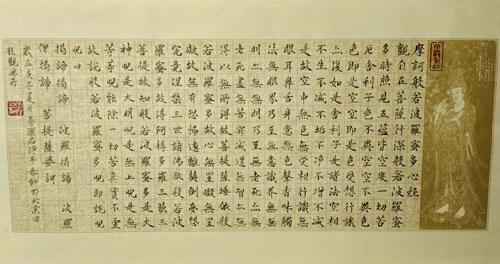 摩訶般若波羅蜜多心經
觀自在菩薩行深般若波羅蜜
多時照見五蘊皆空度一切苦
厄舍利子色不異空空不異色
色即是空空即是色受想行識
亦復如是舍利子是諸法空相
不生不滅不垢不淨不增不減
是故空中無色無受想行識無
眼耳鼻舌身意無色聲香味觸
法無眼界乃至無意識界無無
明亦無無明盡乃至無老死亦無
老死盡無苦集滅道無智亦無
得以無所得故菩提薩埵依般
若波羅蜜多故心無罣礙無罣
礙故無有恐怖遠離顛倒夢想
究竟涅槃三世諸佛依般若波
羅蜜多故得阿耨多羅三藐三
菩提故知般若波羅蜜多是大
神呪是大明呪是無上呪是無
等等呪能除一切苦真實不虛
故說般若波羅蜜多呪即說呪
曰
揭諦揭諦 波羅揭諦 波羅
僧揭諦 菩提薩婆訶